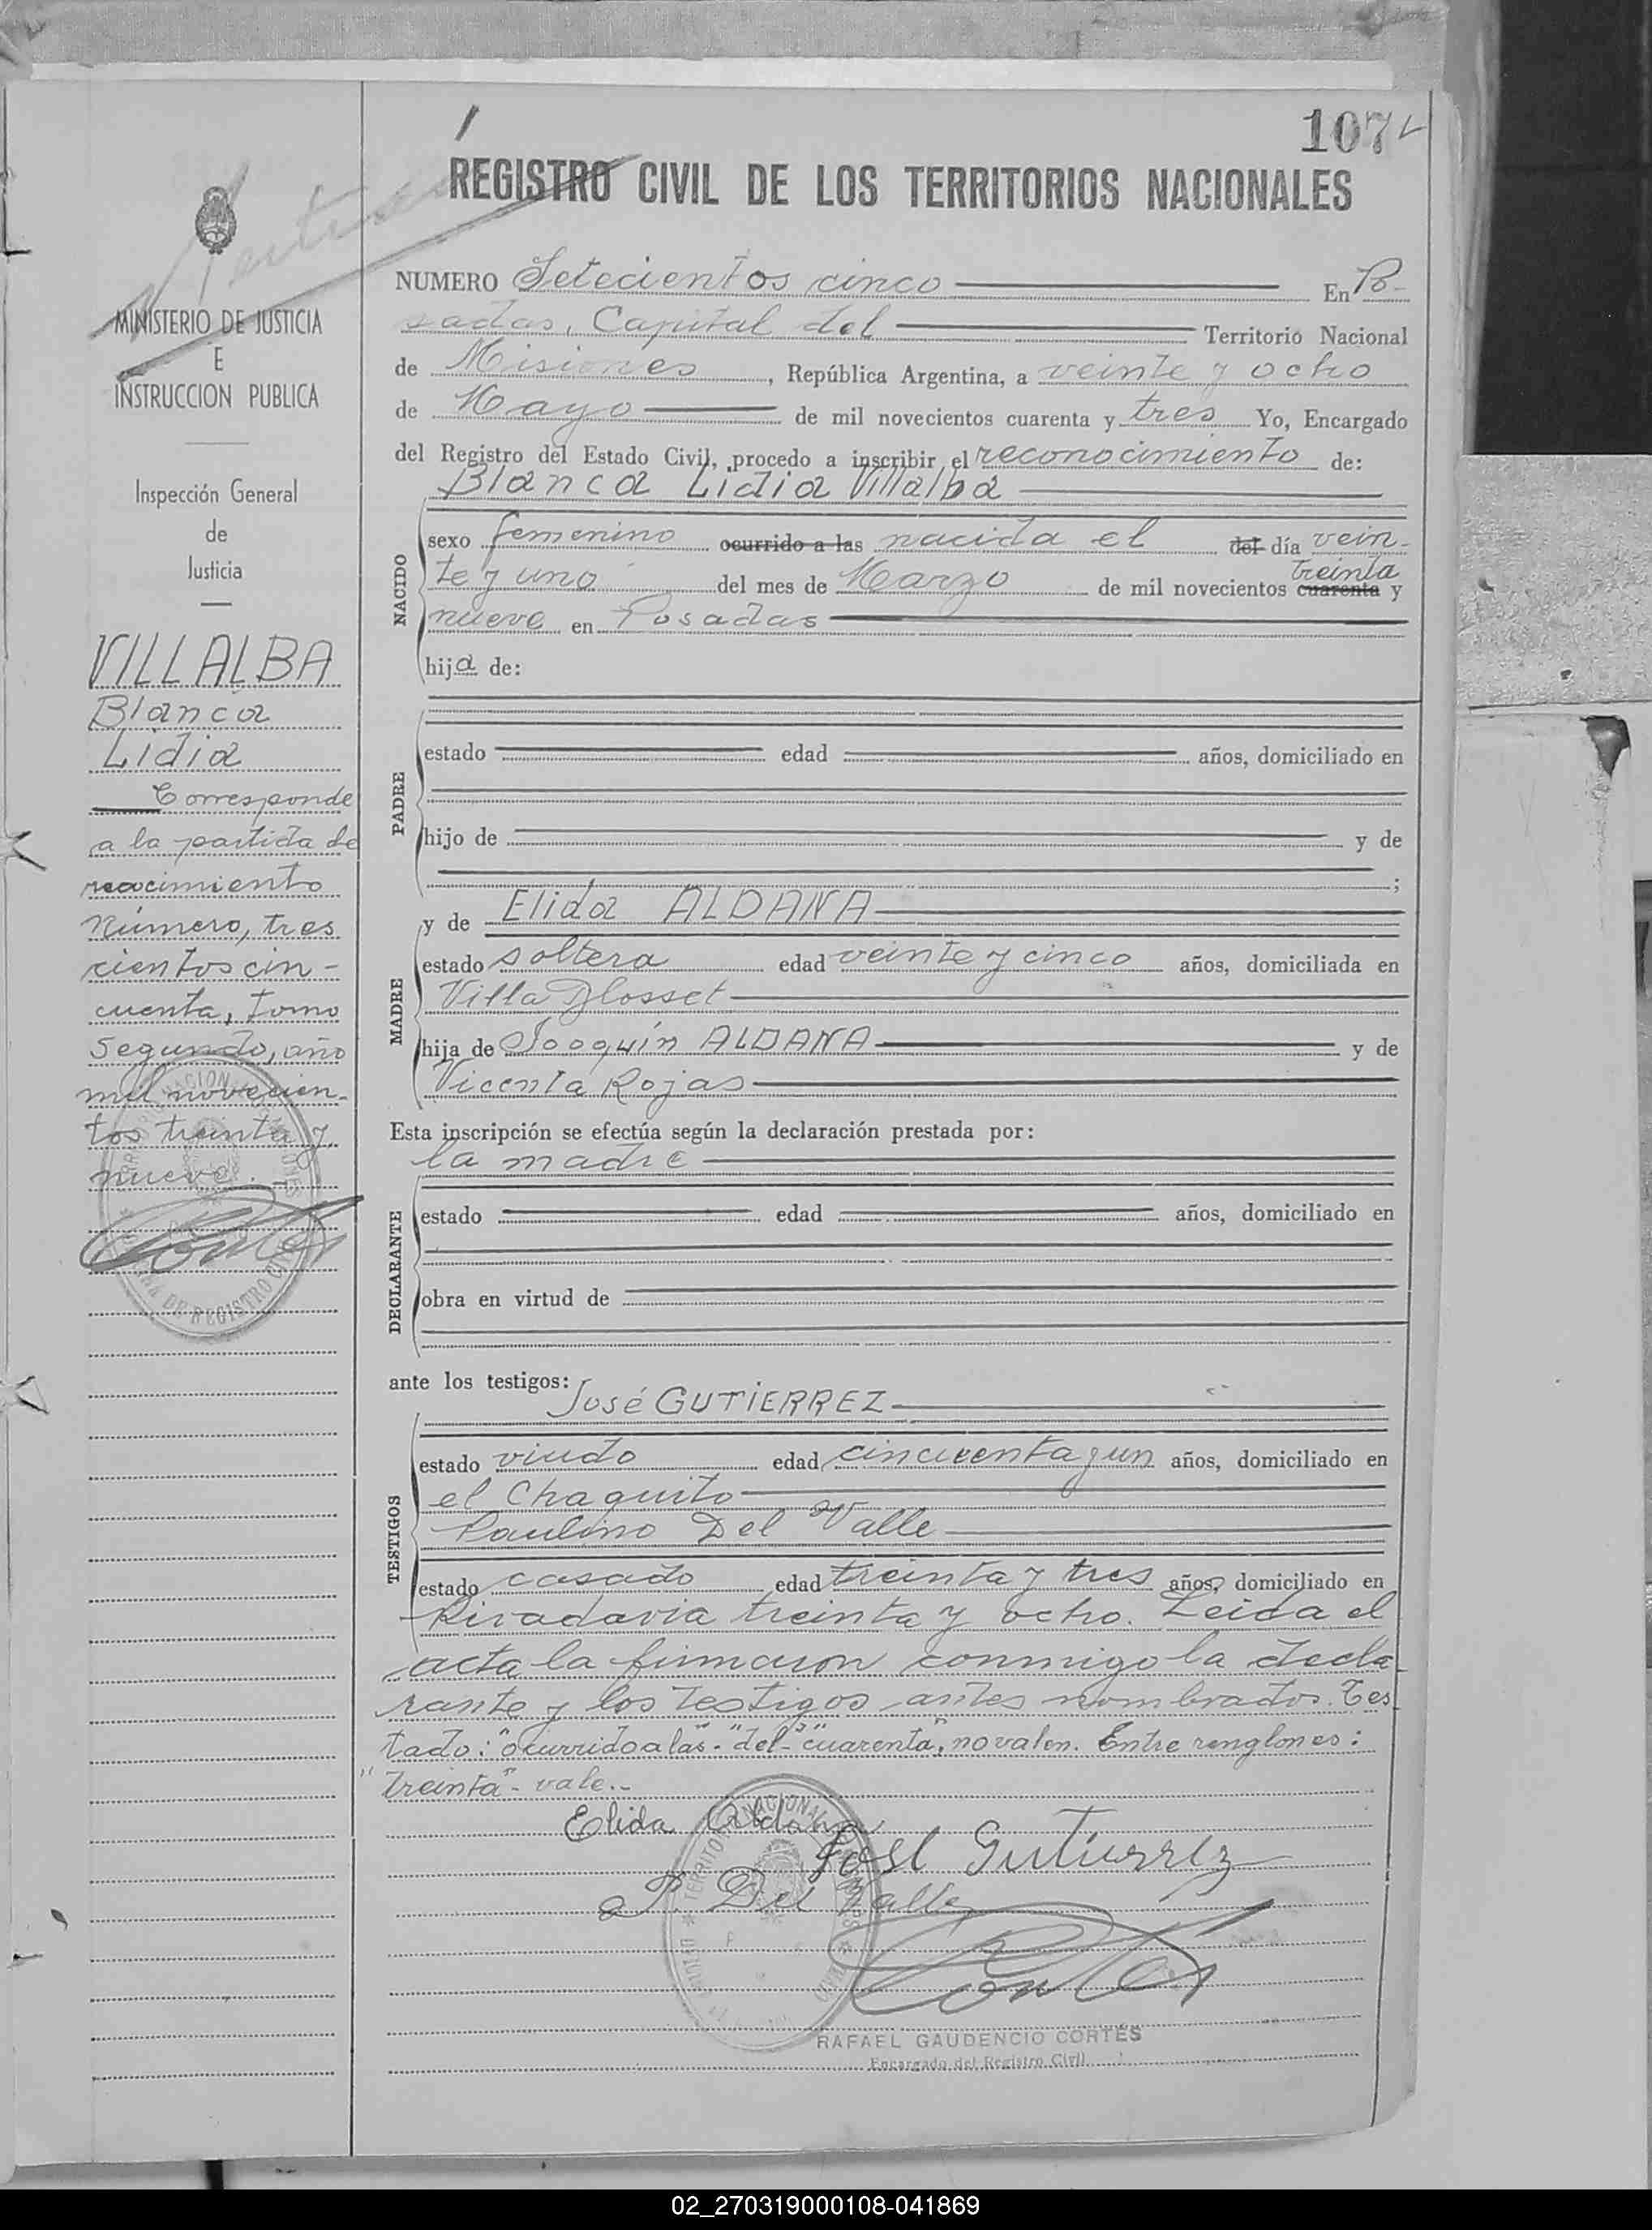 107
REGISTRO CIVIL DE LOS TERRITORIOS NACIONALES
MINISTERIO DE JUSTICIA
E
INSTRUCCION PUBLICA
Inspección General
de
Justicia
VILLALBA
Blanca
Lidia
Corresponde
a la partida de
nacimiento
Número, tres
cientos cin-
cuenta, tomo
segundo, año
mil novecien-
tos treinta y
nueve.
NUMERO Setecientos cinco En Po-
sadas, Capital del Territorio Nacional
de Misiones, República Argentina, a veinte y ocho
de Mayo de mil novecientos cuarenta y tres Yo, Encargado
del Registro del Estado Civil, procedo a inscribir el reconocimiento de:
Blanca Lidia Villalba
NACIDO
sexo femenino ocurrido a las nacida el del día vein-
te y uno del mes de Marzo de mil novecientos cuarenta treinta y
nueve en Posadas
hija de:
PADRE
estado edad años, domiciliado en
hijo de y de
;
MADRE
y de Elida ALDANA
estado soltera edad veinte y cinco años, domiciliada en
Villa Blosset
hija de Joaquín ALDANA y de
Vicenta Rojas
Esta inscripción se efectúa según la declaración prestada por:
la madre
DECLARANTE
estado edad años, domiciliado en
obra en virtud de
ante los testigos:
José GUTIERREZ
TESTIGOS
estado viudo edad cincuenta y un años, domiciliado en
el Chaquito
Paulino Del Valle
estado casado edad treinta y tres años, domiciliado en
Rivadavia treinta y ocho. Leida el
acta la firmaron conmigo la decla
rante y los testigos antes nombrados. Tes
tado: "ocurrido a las" - "del" - "cuarenta", no valen. Entre renglones:
"treinta" - vale.-
Elida Aldana
José Gutierrez
P. Del Valle
Cortés
RAFAEL GAUDENCIO CORTÉS
Encargado del Registro Civil
02_270319000108-041869